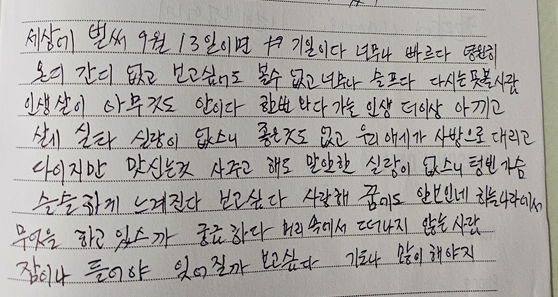 세상에 벌써 9월 13일이면 기일이다 너무나 빠르다 영원히
온디 간디 없고 보고싶어도 볼수 없고 너무나 슬프다 다시는못볼사람
인생살이 아무것도 안이다 한번 왔다 가는 인생 더이상 아끼고
살기 실타 실랑이 없스니 좋은것도 없고 우리 애기가 사방으로 대리고
다이지만 맛신는것 사주고 해도 말안한 실랑이 없스니 텅빈가슴
슬슬하게 느껴진다 보고싶다 사랑해 꿈에도 안보인네 하늘나라에서
무엇을 하고 있스까 궁금하다 머리속에서 떠나지 않는 사람
잠이나 들어야 잊어질까 보고싶다 기도나 많이해야지